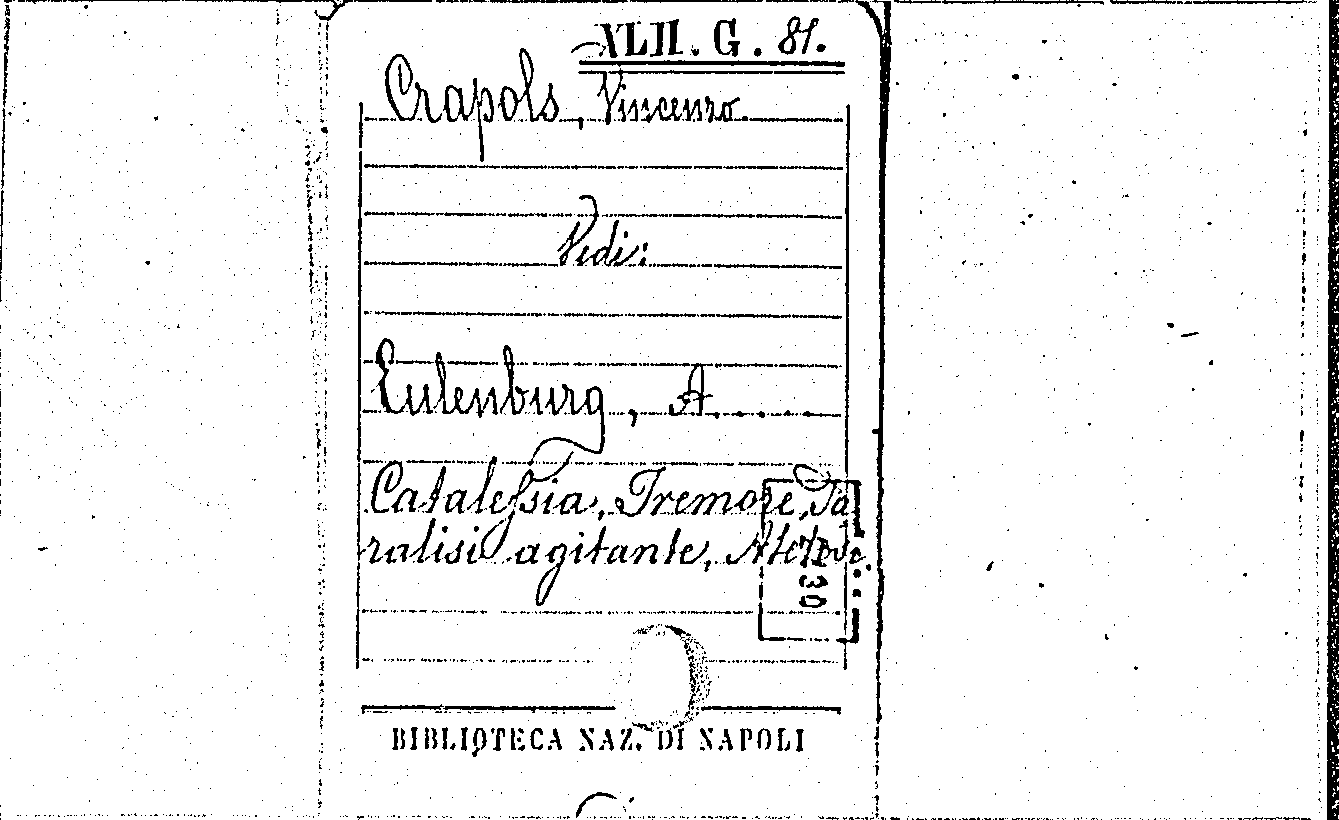 XLII. G. 81.
Crapols, Vincenzo.
Vedi:
Eulenburg, A.....
Catalessia, Tremore, Pa
ralisi agitante, Atetosi.
BIBLIOTECA NAZ. DI NAPOLI